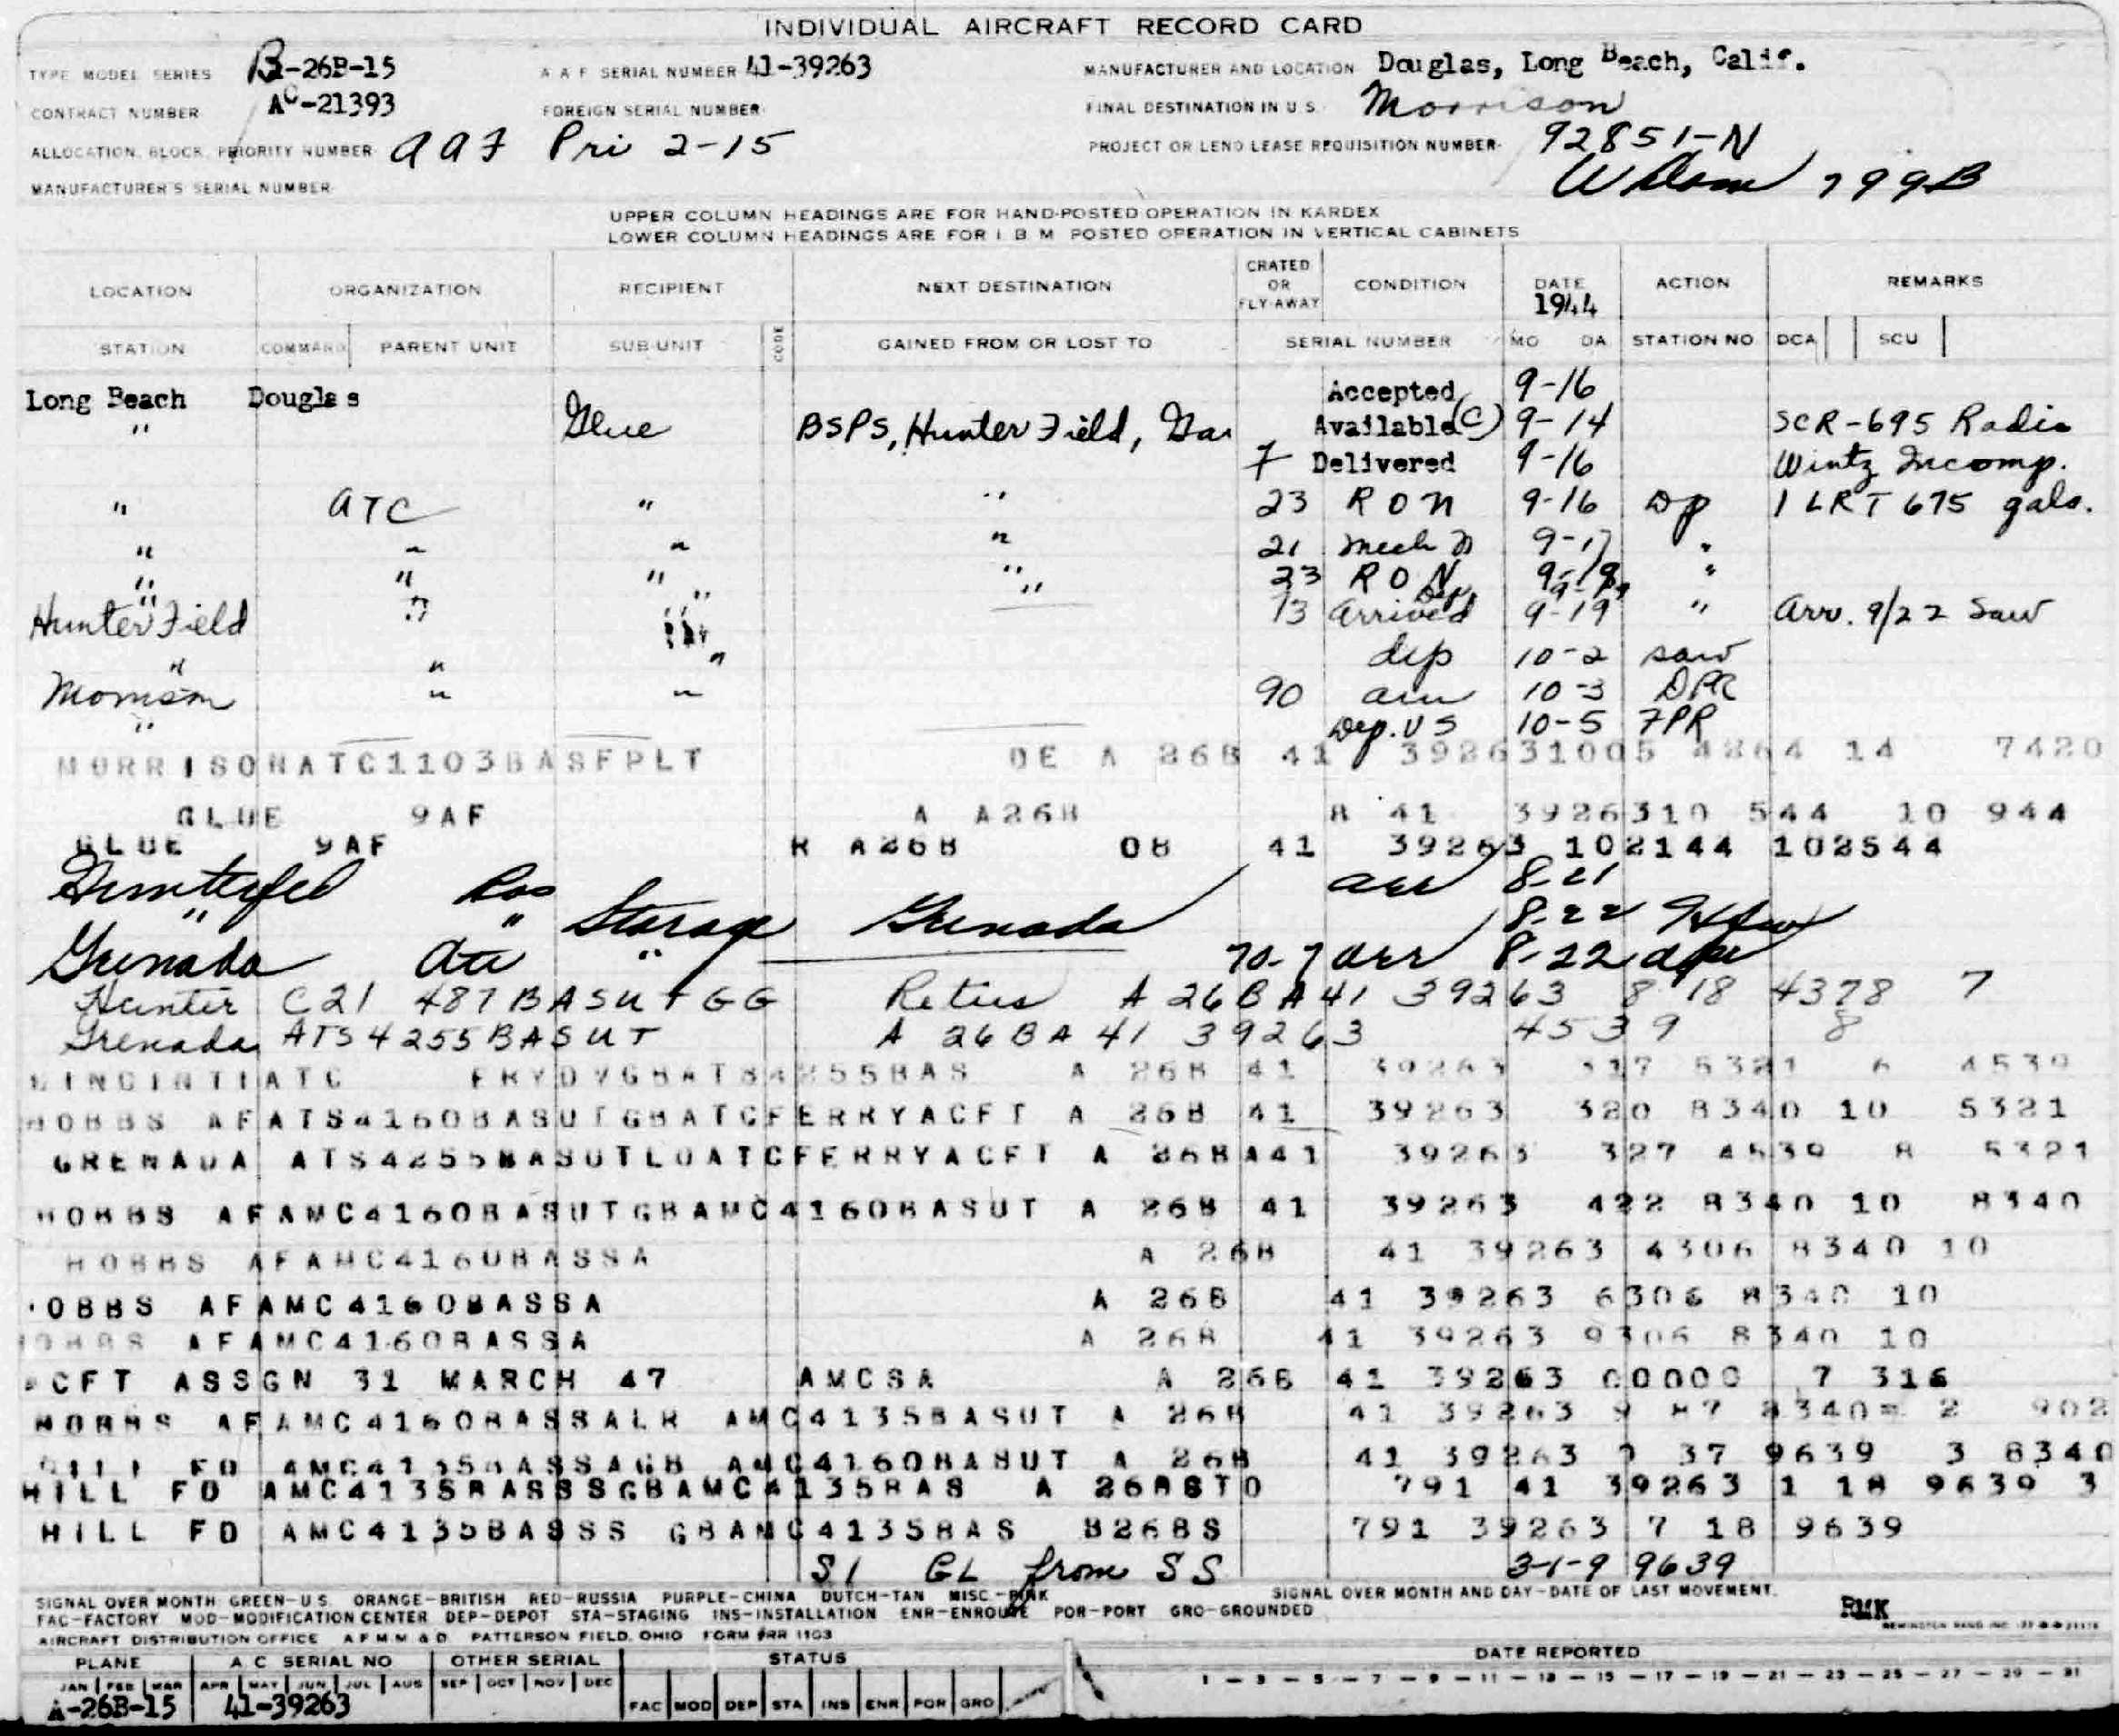 INDIVIDUAL AIRCRAFT RECORD CARD
TYPE MODEL SERIES B-26B-15 A A F SERIAL NUMBER 41-39263 MANUFACTURER AND LOCATION Douglas, Long Beach, Calif.
CONTRACT NUMBER AC-21393 FOREIGN SERIAL NUMBER FINAL DESTINATION IN U.S. Morrison
ALLOCATION, BLOCK, PRIORITY NUMBER AAF Pri 2-15 PROJECT OR LEND LEASE REQUISITION NUMBER 92851-N
MANUFACTURER'S SERIAL NUMBER 799B
UPPER COLUMN HEADINGS ARE FOR HAND-POSTED OPERATION IN KARDEX
LOWER COLUMN HEADINGS ARE FOR I B M POSTED OPERATION IN VERTICAL CABINETS
LOCATION ORGANIZATION RECIPIENT NEXT DESTINATION CRATED OR FLY-AWAY CONDITION DATE 1944 ACTION REMARKS
STATION COMMAND PARENT UNIT SUB-UNIT CODE GAINED FROM OR LOST TO SERIAL NUMBER MO DA STATION NO DCA SCU
Long Beach Douglas Accepted 9-16
" Glue BSPS, Hunter Field, Ga. Available (C) 9-14 SCR-695 Radio
7 Delivered 9-16 Wintz Incomp.
" ATC " " 23 RON 9-16 Dp 1 LRT 675 gals.
" " " " 21 Mech 9-17 "
" " " " 23 RON 9-18 "
Hunter Field " " 13 Arrived 9-19 " Arr. 9/22 Saw
" " " dep 10-2 saw
Morrison " " 90 arr 10-3 DPR
" Dep. US 10-5 7PR
MORRISONATC1103BASFPLT DE A 26B 41 392631005 4264 14 7420
GLUE 9AF A A26B B 41 3926310 544 10 944
GLUE 9AF R A26B 08 41 39263 102144 102544
arr 8-21
" " Storage Grenada 8-22
Grenada " 70-7 arr 8-22
Hunter C21 487BASUTGG A 26BA41 39263 8 18 4378 7
Grenada ATS4255BASUT A 26BA41 39263 4539 8
A 26B 41 39263 317 5321 6 4539
HOBBS AFATS4160BASUTGBATCFERRYACFT A 26B 41 39263 320 8340 10 5321
GRENADA ATS4255BASUTLOATCFERRYACFT A 26BA41 39263 327 4539 8 5321
HOBBS AFAMC4160BASUTGBAMC4160BASUT A 26B 41 39263 422 8340 10 8340
HOBBS AFAMC4160BASSA A 26B 41 39263 4306 8340 10
OBBS AFAMC4160BASSA A 26B 41 39263 6306 8340 10
HOBBS AFAMC4160BASSA A 26B 41 39263 9306 8340 10
CFT ASSGN 31 MARCH 47 AMCSA A 26B 41 39263 00000 7 316
HOBBS AFAMC4160BASSALR AMC4135BASUT A 26B 41 39263 9 87 8340 2 902
HILL FD AMC4135BASSAGB AMC4160BASUT A 26B 41 39263 37 9639 3 8340
HILL FD AMC4135BASSSGBAMC4135BAS A 26BSTO 791 41 39263 1 18 9639 3
HILL FD AMC4135BASSS GBAMC4135BAS B26BS 791 39263 7 18 9639
S1 GL from SS 3-1-9 9639
SIGNAL OVER MONTH GREEN-U.S. ORANGE-BRITISH RED-RUSSIA PURPLE-CHINA DUTCH-TAN MISC.-PINK SIGNAL OVER MONTH AND DAY-DATE OF LAST MOVEMENT.
FAC-FACTORY MOD-MODIFICATION CENTER DEP-DEPOT STA-STAGING INS-INSTALLATION ENR-ENROUTE POR-PORT GRO-GROUNDED RMK
AIRCRAFT DISTRIBUTION OFFICE A F M M & D PATTERSON FIELD, OHIO FORM PRR 1103
PLANE A C SERIAL NO OTHER SERIAL STATUS DATE REPORTED
JAN FEB MAR APR MAY JUN JUL AUG SEP OCT NOV DEC 1 - 3 - 5 - 7 - 9 - 11 - 13 - 15 - 17 - 19 - 21 - 23 - 25 - 27 - 29 - 31
A-26B-15 41-39263 FAC MOD DEP STA INS ENR POR GRO